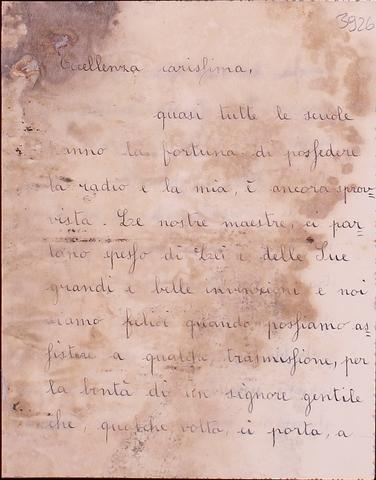 3926
Eccellenza carissima,
quasi tutte le scuole
hanno la fortuna di possedere
la radio e la mia, è ancora sprov=
vista. Le nostre maestre, ci par=
lano spesso di Lei e delle Sue
grandi e belle invenzioni e noi
siamo felici quando possiamo as=
sistere a qualche trasmissione, per
la bontà di un signore gentile
che, qualche volta, ci porta, a